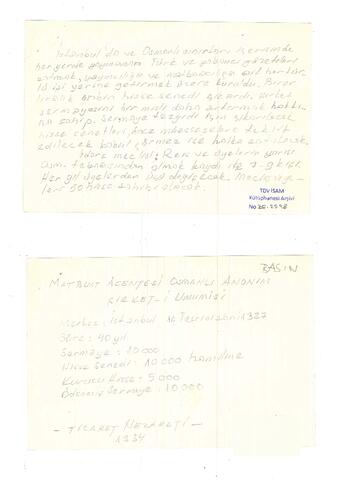 İstanbul'da ve Osmanlı sınırları içerisinde
her yerde yayınlanan Türk ve yabancı gazeteleri
satmak, yayıncılığa ve matbaacılığa ait her tür-
lü işi yerine getirmek üzere kuruldu. Birer
liralık onbin hisse senedi çıkardı. Şirket
sermayesini bir misli daha artırmak hakkı-
na sahip. Sermaye tezyidi için çıkarılacak
hisse senetleri, önce müessislere teklif
edilecek kabul görmez ise halka satılacak.
İdare meclisi: Reis ve üyelerin yarısı
Osm. tebaasından olmak kaydı ile 7-9 kişi.
Her yıl üyelerden değişecek. Meclis üye-
leri 50 hisse sahibi olacak.
TDV İSAM
Kütüphanesi Arşivi
No 2E-
BASIN
MATBUAT ACENTESİ OSMANLI ANONİM
ŞİRKET-İ UMUMİSİ
Merkez: İstanbul Teşrinisani 1327
Süre: 40 yıl
Sermaye: 10.000
Hisse Senedi: 10.000 hamiline
Kurucu Hisse: 5000
Ödenmiş Sermaye: 10.000
- TİCARET NEZARETİ -
1334